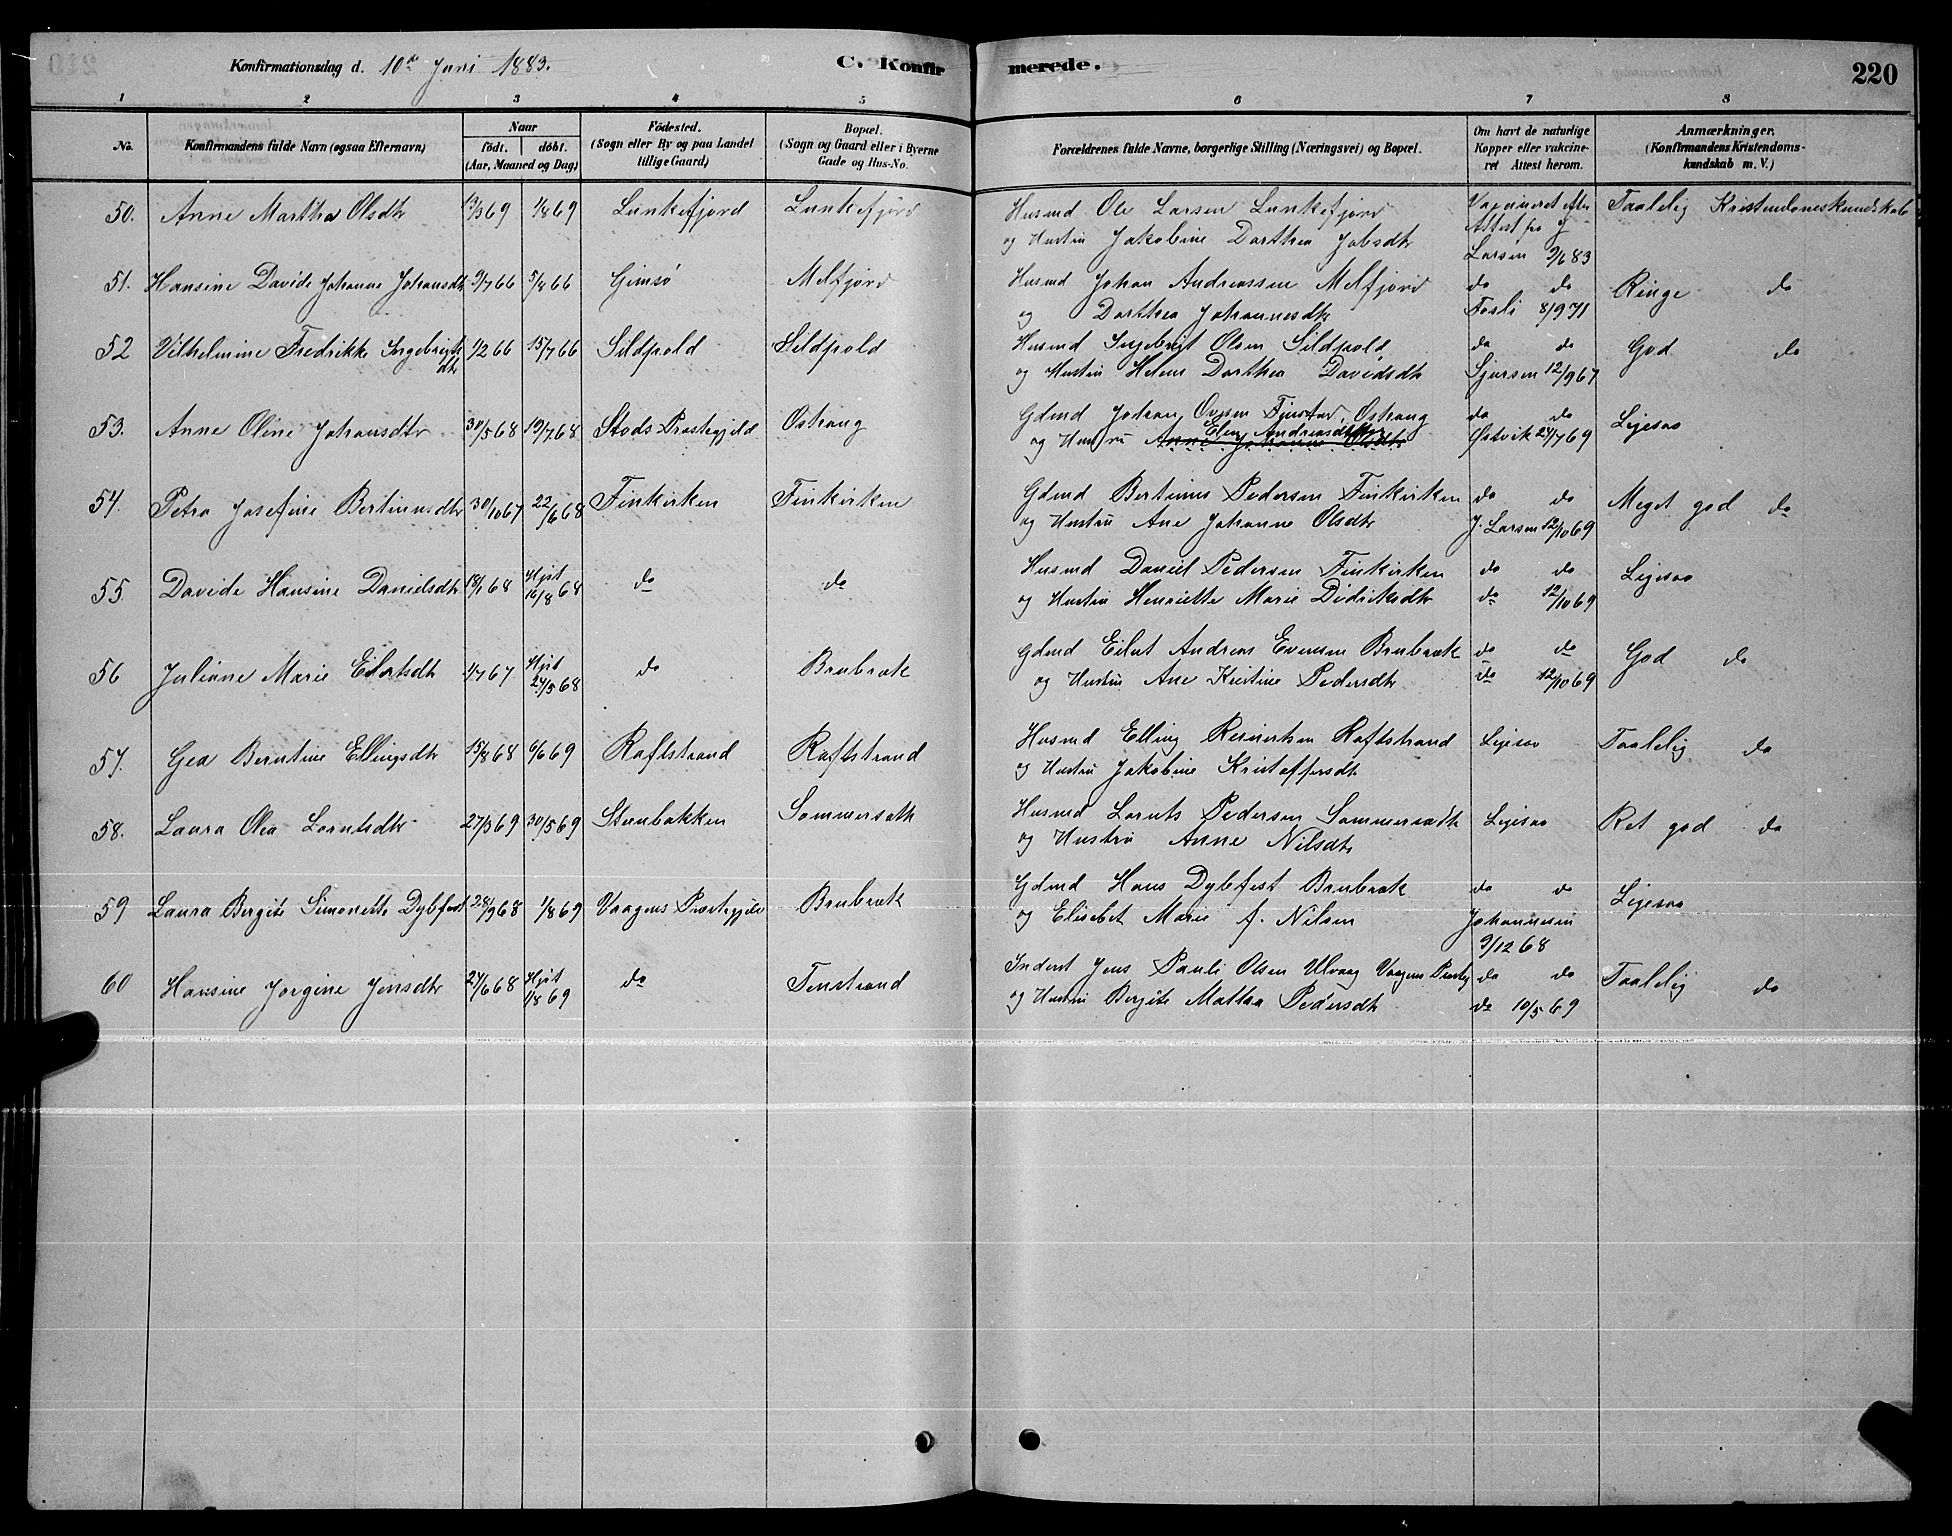 Konfirmationsdag d. 10de Juni 1883.
C. Konfirmerede.
220
1 2 3 4 5 6 7 8
No.
Konfirmandens fulde Navn (ogsaa Efternavn)
Naar
födt. döbt.
(Aar, Maaned og Dag)
Födested.
(Sogn eller By og paa Landet
tillige Gaard)
Bopæl.
(Sogn og Gaard eller i Byerne
Gade og Hus-No.
Forældrenes fulde Navne, borgerlige Stilling (Næringsvei) og Bopæl.
Om havt de naturlige
Kopper eller vakcine-
ret Attest herom.
Anmærkninger.
(Konfirmandens Kristendoms-
kundskab m. V.)
50. Anne Martha Olsdtr 13/3 69 1/8 69 Lunkefjord Lunkefjord Husmd Ole Larsen Lunkefjord Vaccineret efter Taalelig Kristendomskundskab
og Hustru Jakobine Dorthea Jobsdtr Attest fra J
Larsen 9/6 83
51. Hansine Davide Johanne Johansdtr 9/7 66 5/8 66 Gimsø Melfjord Husmd Johan Andreassen Melfjord do do Ringe do
og Dorthea Johannesdtr Fosli 8/9 71
52 Vilhelmine Fredrikke Ingebrigts 1/2 66 15/7 66 Sildpold Sildpold Husmd Ingebrigt Olsen Sildpold do do God do
dtr og Hustru Helene Dorthea Davidsdtr Sjursen 12/9 67
53. Anne Oline Johansdtr 30/5 68 19/7 68 Stods Præstegjeld Ostrang Gdmd Johan Ovesen Finstad, Ostrang do do Ligesaa
Elen Andreasdatter
og Hustru Anne Johanne Olsdtr Østvik 24/7 69
54. Petra Josefine Bertinusdtr 30/10 67 22/6 68 Finkirken Finkirken Gdmd Bertinus Pedersen Finkirken do do Meget god do
og Hustru Ane Johanne Olsdtr J. Larsen 12/10 69
55. Davide Hansine Danielsdtr 18/1 68 Hjst 16/8 68 do do Husmd Daniel Pedersen Finkirken do do Ligesaa
og Hustru Henriette Marie Didriksdtr do 12/10 69
56 Juliane Marie Eilertsdtr 1/7 67 Hjst 24/5 68 do Brubræk Gdmd Eilert Andreas Evensen Brubræk do do God do
og Hustru Ane Kristine Pedersdtr do 12/10 69
57. Gea Berntine Ellingsdtr 15/8 68 6/6 69 Raftstrand Raftstrand Husmd Elling Reinertsen Raftstrand Ligesaa Taalelig do
og Hustru Jakobine Kristoffersdtr
58. Laura Olea Lorntsdtr 27/3 69 30/5 69 Stenbakken Sommersæth Husmd Lornts Pedersen Sommersædth Ligesaa Ret god do
og Hustru Anne Nilsdtr
59 Laura Bergite Simonette Dybfest 28/9 68 1/8 69 Vaagens Præstegjeld Brubræk Gdmd Hans Dybfest Brubræk do do Ligesaa
og Elisabet Marie f. Nilsen Johannesen
9/12 68
60 Hansine Jorgine Jensdtr 24/6 68 Hjst 1/8 69 do Tenstrand Inderst Jens Pauli Olsen Ulvaag Vaagens Prestg do do Taalelig do
og Hustru Bergite Martha Pedersdtr do 10/5 69